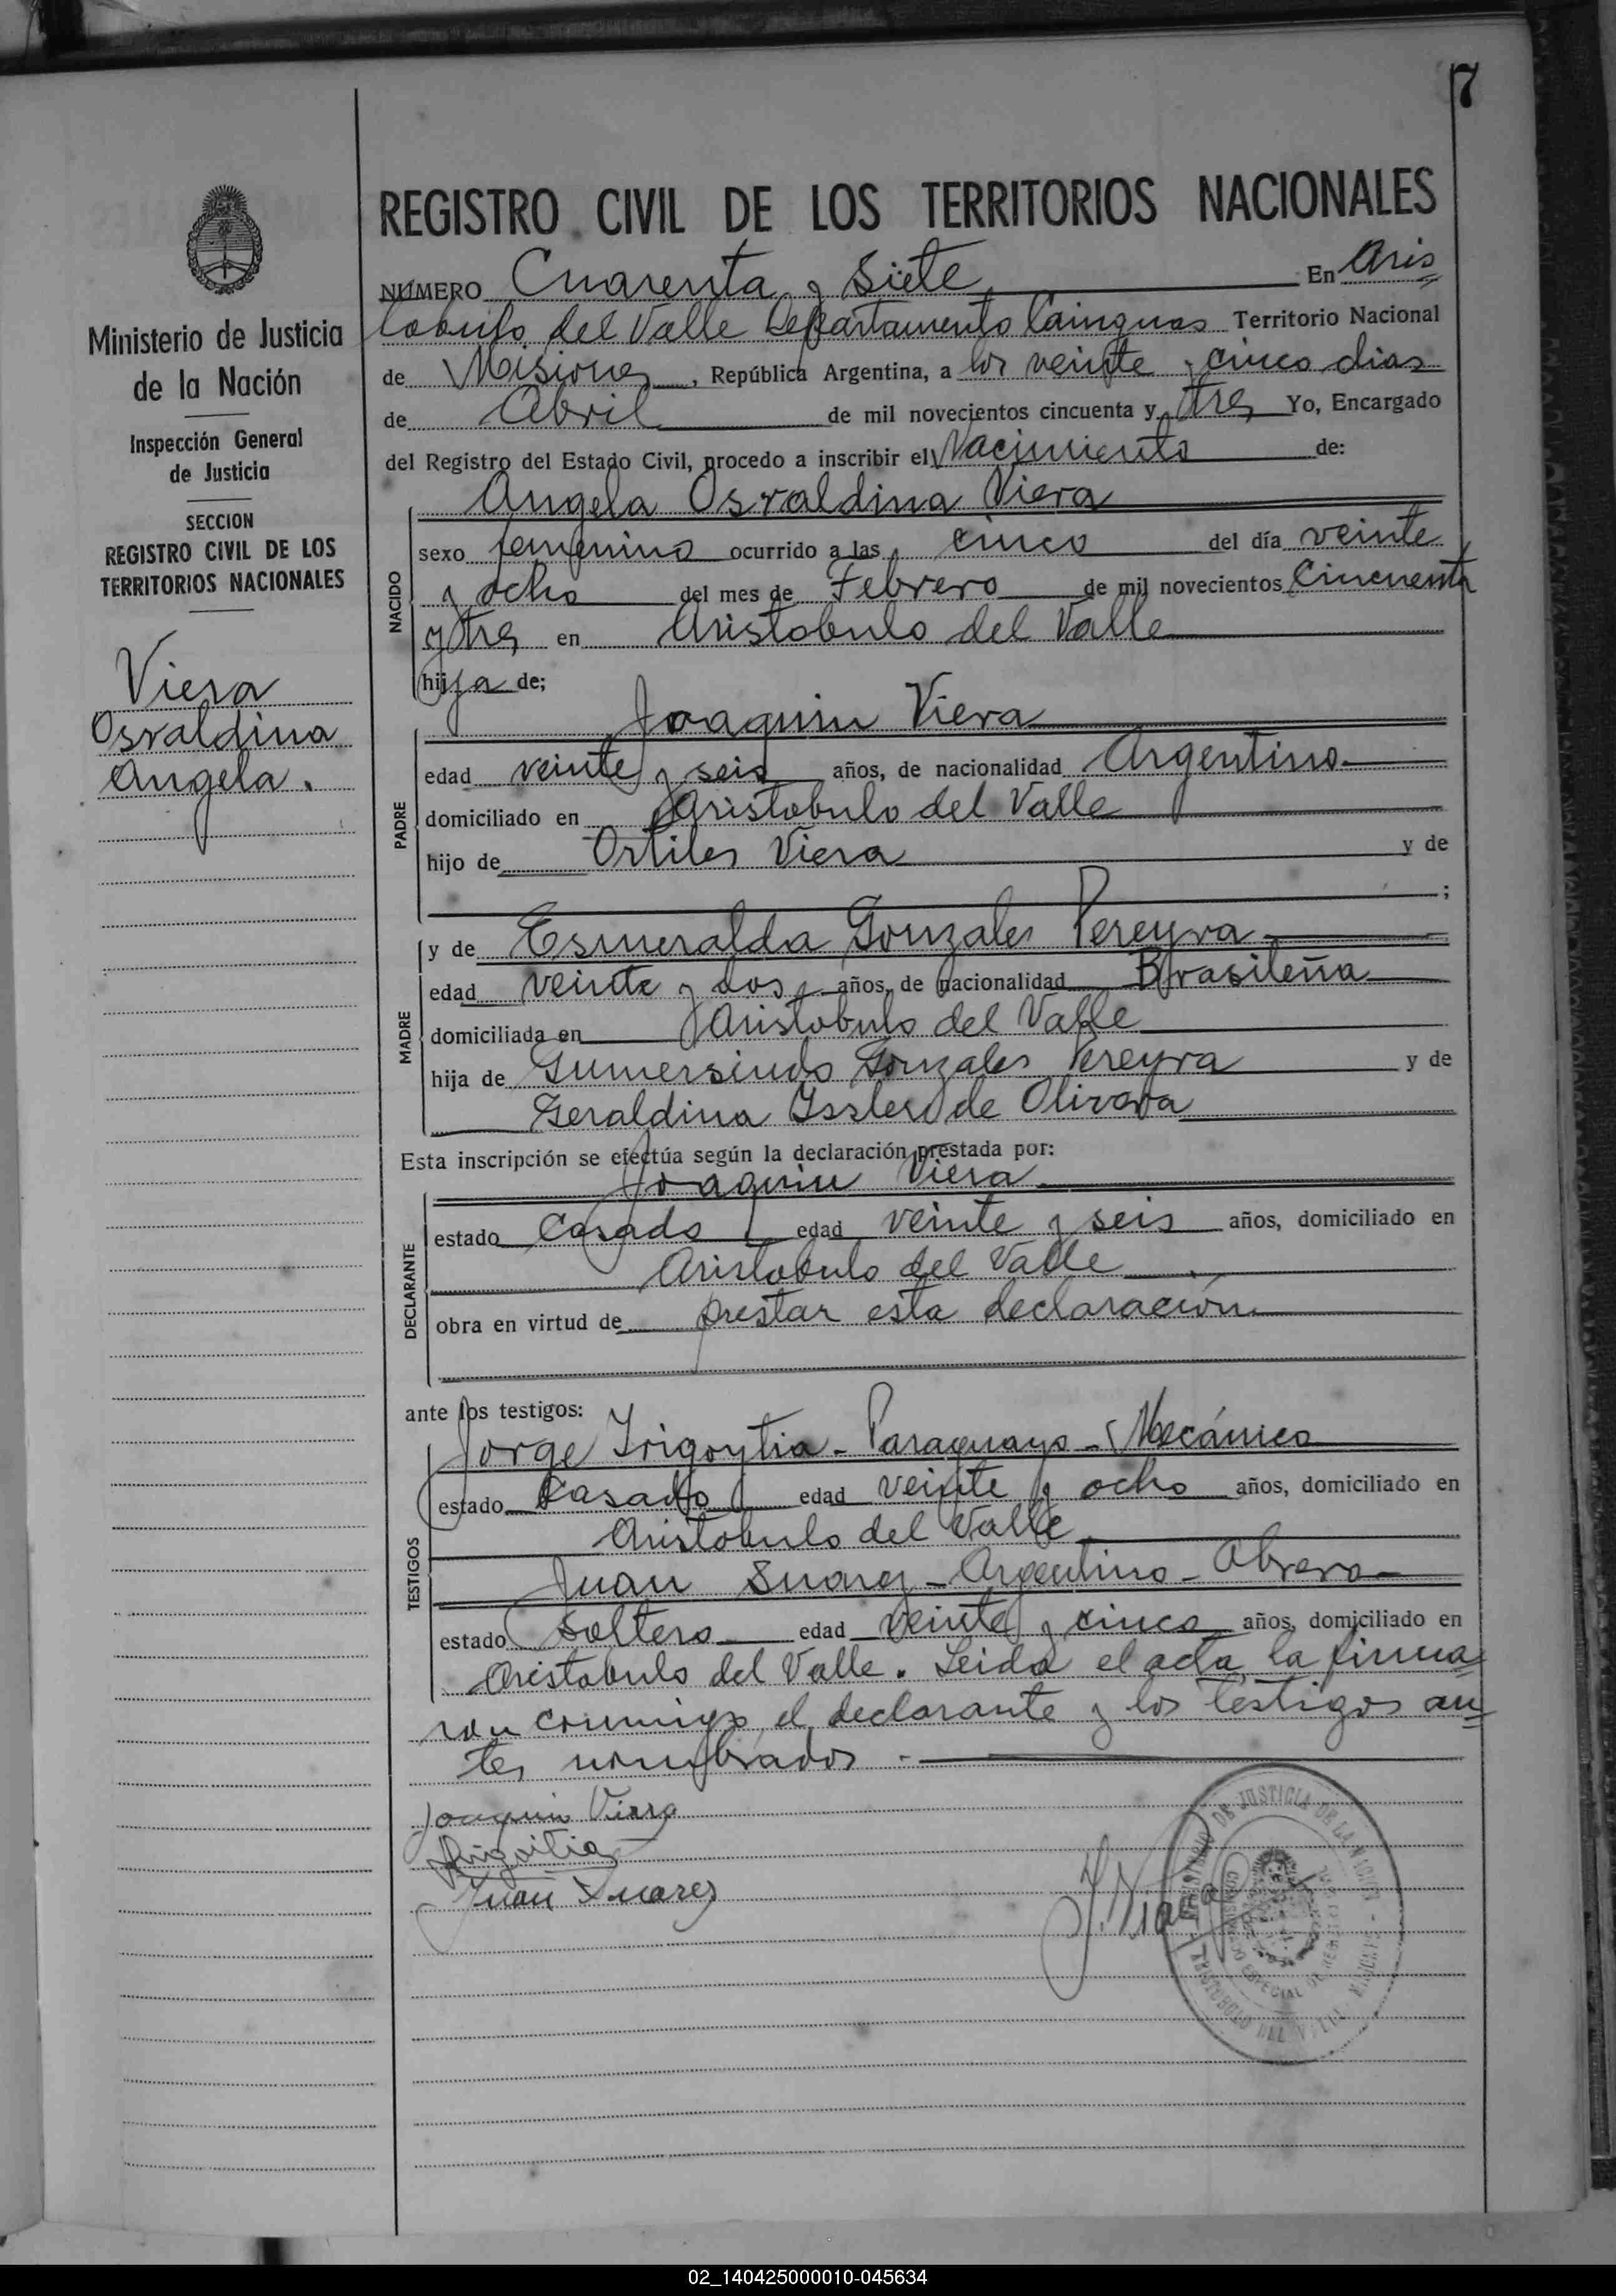 7
REGISTRO CIVIL DE LOS TERRITORIOS NACIONALES
NÚMERO Cuarenta y Siete En Aris
tobulo del Valle Departamento Cainguas Territorio Nacional
de Misiones, República Argentina, a los veinte y cinco dias
de Abril de mil novecientos cincuenta y tres Yo, Encargado
del Registro del Estado Civil, procedo a inscribir el Nacimiento de:
Ministerio de Justicia
de la Nación
Inspección General
de Justicia
SECCION
REGISTRO CIVIL DE LOS
TERRITORIOS NACIONALES
Viera
Osvaldina
Angela.
NACIDO
Angela Osvaldina Viera
sexo femenino ocurrido a las cinco del día veinte
y ocho del mes de Febrero de mil novecientos Cincuenta
y tres en Aristobulo del Valle
hija de;
PADRE
Joaquin Viera
edad veinte y seis años, de nacionalidad Argentino
domiciliado en Aristobulo del Valle
hijo de Ortiles Viera y de
;
MADRE
y de Esmeralda Gonzales Pereyra
edad veinte y dos años, de nacionalidad Brasileña
domiciliada en Aristobulo del Valle
hija de Gumersindo Gonzales Pereyra y de
Geraldina Issler de Olivera
Esta inscripción se efectúa según la declaración prestada por:
DECLARANTE
Joaquin Viera
estado Casado edad veinte y seis años, domiciliado en
Aristobulo del Valle
obra en virtud de prestar esta declaración
ante los testigos:
TESTIGOS
Jorge Irigoytia - Paraguayo - Mecánico
estado Casado edad veinte y ocho años, domiciliado en
Aristobulo del Valle
Juan Suarez - Argentino - Obrero
estado Soltero edad veinte y cinco años, domiciliado en
Aristobulo del Valle. Leida el acta, la firma
ron conmigo el declarante y los testigos an
tes nombrados.-
Joaquin Viera
Irigoitia
Juan Suarez
MINISTERIO DE JUSTICIA DE LA NACION
ARISTOBULO DEL VALLE
02_140425000010-045634